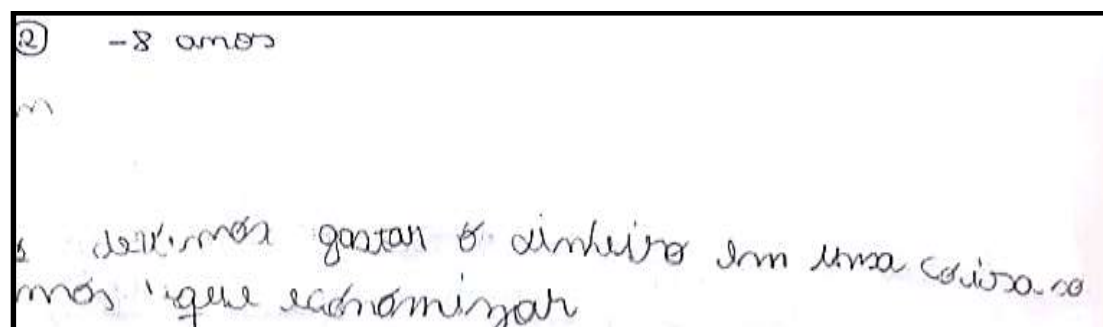 ② -8 anos
m
devemos gastar o dinheiro em uma coisa só
mos que economizar